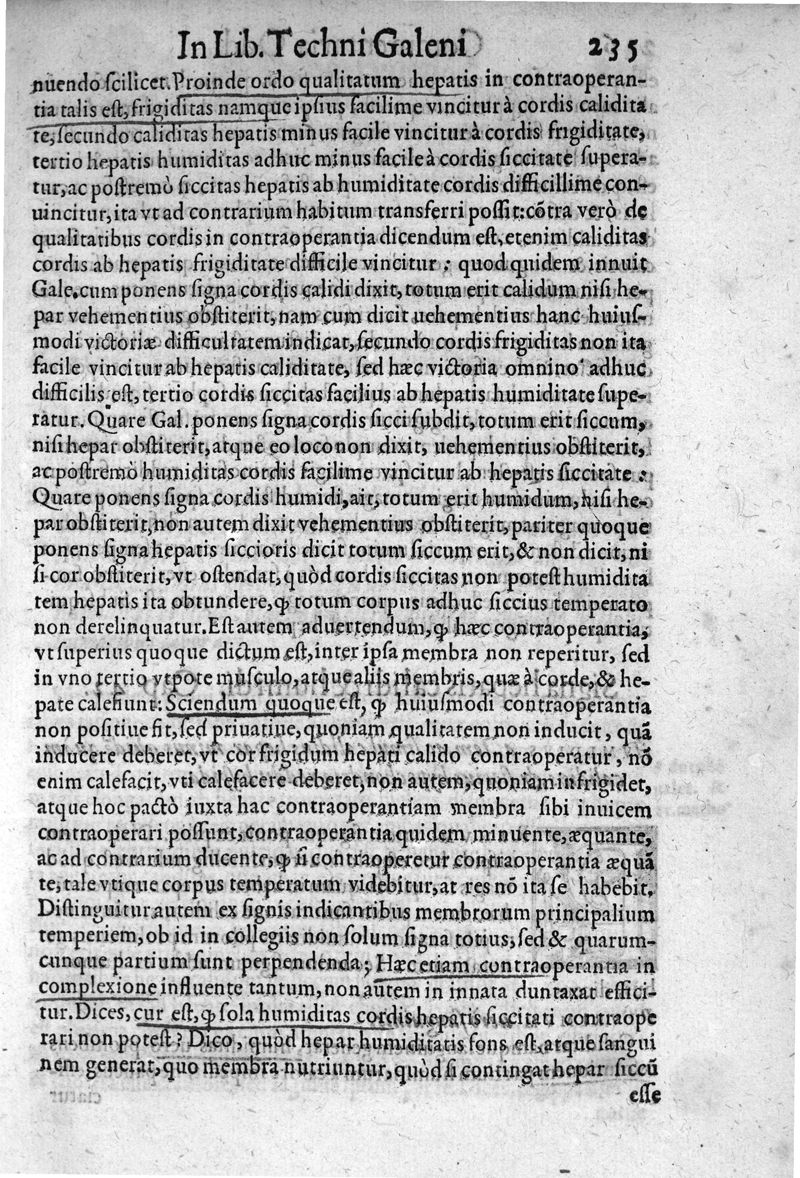 In Lib. Techni Galeni 235
nuendo scilicet. Proinde ordo qualitatum hepatis in contraoperan-
tia talis est, frigiditas namque ipsius facilime vincitur à cordis calidita
te, secundo caliditas hepatis minus facile vincitur à cordis frigiditate,
tertio hepatis humiditas adhuc minus facile à cordis siccitate supera-
tur, ac postremò siccitas hepatis ab humiditate cordis difficillime con-
uincitur, ita vt ad contrarium habitum transferri possit: cōtra verò de
qualitatibus cordis in contraoperantia dicendum est, etenim caliditas
cordis ab hepatis frigiditate difficile vincitur: quod quidem innuit
Gale. cum ponens signa cordis calidi dixit, totum erit calidum nisi he-
par vehementius obstiterit, nam cum dicit uehementius hanc huius-
modi victoriæ difficultatem indicat, secundo cordis frigiditas non ita
facile vincitur ab hepatis caliditate, sed hæc victoria omnino adhuc
difficilis est, tertio cordis siccitas facilius ab hepatis humiditate supe-
ratur. Quare Gal. ponens signa cordis sicci subdit, totum erit siccum,
nisi hepar obstiterit, atque eo loco non dixit, uehementius obstiterit,
ac postremò humiditas cordis facilime vincitur ab hepatis siccitate:
Quare ponens signa cordis humidi, ait, totum erit humidum, nisi he-
par obstiterit, non autem dixit vehementius obstiterit, pariter quoque
ponens signa hepatis siccioris dicit totum siccum erit, & non dicit, ni
si cor obstiterit, vt ostendat, quòd cordis siccitas non potest humidita
tem hepatis ita obtundere, ꝙ totum corpus adhuc siccius temperato
non derelinquatur. Est autem aduertendum, ꝙ hæc contraoperantia,
vt superius quoque dictum est, inter ipsa membra non reperitur, sed
in vno tertio vtpote musculo, atque aliis membris, quæ à corde, & he-
pate calefiunt: Sciendum quoque est, ꝙ huiusmodi contraoperantia
non positiue fit, sed priuatiue, quoniam qualitatem non inducit, quā
inducere deberet, vt cor frigidum hepati calido contraoperatur, nō
enim calefacit, vti calefacere deberet, non autem, quoniam infrigidet,
atque hoc pactò iuxta hac contraoperantiam membra sibi inuicem
contraoperari possunt, contraoperantia quidem minuente, æquante,
ac ad contrarium ducente, ꝙ si contraoperetur contraoperantia æquā
te, tale vtique corpus temperatum videbitur, at res nō ita se habebit.
Distinguitur autem ex signis indicantibus membrorum principalium
temperiem, ob id in collegiis non solum signa totius, sed & quarum-
cunque partium sunt perpendenda; Hæc etiam contraoperantia in
complexione influente tantum, non autem in innata duntaxat effici-
tur. Dices, cur est, ꝙ sola humiditas cordis hepatis siccitati contraope
rari non potest? Dico, quòd hepar humiditatis fons est, atque sangui
nem generat, quo membra nutriuntur, quòd si contingat hepar siccū
esse